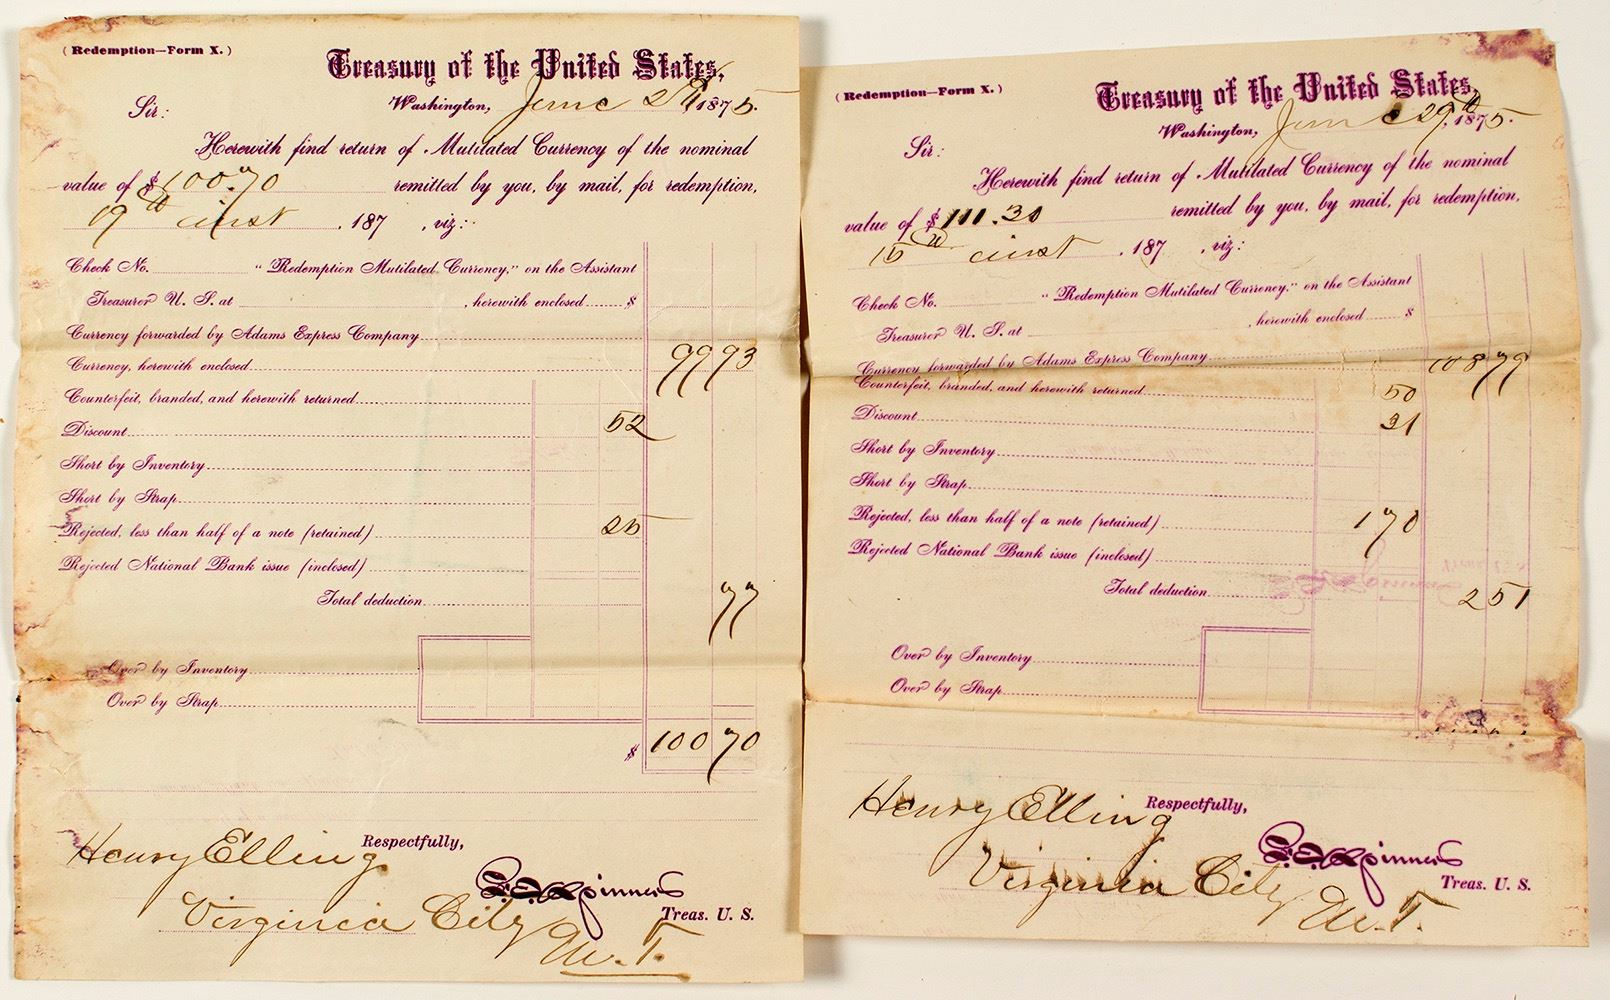 (Redemption—Form X.)
Treasury of the United States,
Washington, June 29th, 1875.
Sir:
Herewith find return of Mutilated Currency of the nominal
value of $100.70 remitted by you, by mail, for redemption,
19th inst , 187 , viz:
Check No. "Redemption Mutilated Currency," on the Assistant
Treasurer U. S. at , herewith enclosed $
Currency forwarded by Adams Express Company
Currency, herewith enclosed 99 93
Counterfeit, branded, and herewith returned
Discount 52
Short by Inventory
Short by Strap
Rejected, less than half of a note (retained) 25
Rejected National Bank issue (inclosed)
Total deduction 77
Over by Inventory
Over by Strap
$ 100 70
Respectfully,
Henry Elling
F. E. Spinner
Treas. U. S.
Virginia City
M. T.
(Redemption—Form X.)
Treasury of the United States,
Washington, June 29th, 1875.
Sir:
Herewith find return of Mutilated Currency of the nominal
value of $111.30 remitted by you, by mail, for redemption,
15th inst , 187 , viz:
Check No. "Redemption Mutilated Currency," on the Assistant
Treasurer U. S. at , herewith enclosed $
Currency forwarded by Adams Express Company 108 79
Counterfeit, branded, and herewith returned 50
Discount 31
Short by Inventory
Short by Strap
Rejected, less than half of a note (retained) 1 70
Rejected National Bank issue (inclosed)
Total deduction 2 51
Over by Inventory
Over by Strap
Respectfully,
Henry Elling
F. E. Spinner
Treas. U. S.
Virginia City
M. T.